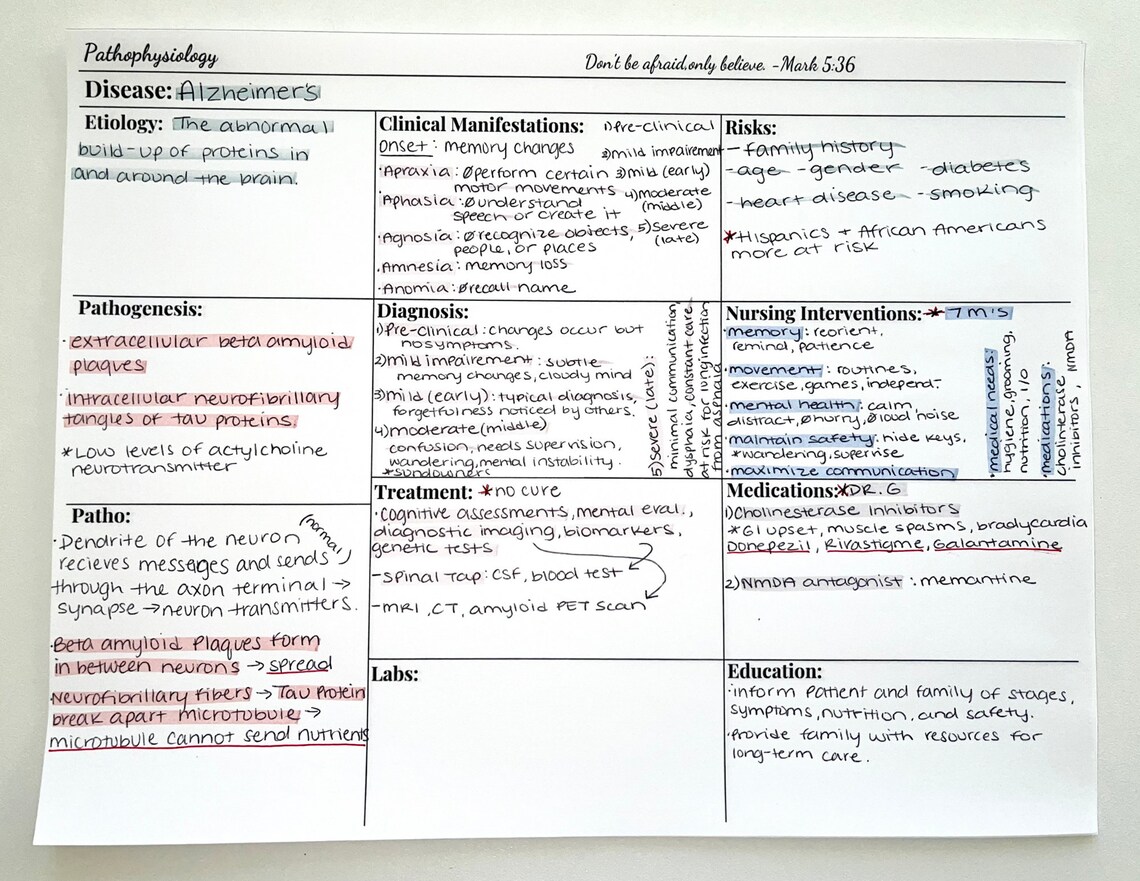 Pathophysiology
Don't be afraid, only believe. -Mark 5:36
Disease: Alzheimer's
Etiology: The abnormal
build-up of proteins in
and around the brain.
Clinical Manifestations:
Onset: memory changes
·Apraxia: Øperform certain
motor movements
Aphasia: Øunderstand
speech or create it
·Agnosia: Ørecognize objects,
people, or places
·Amnesia: memory loss
·Anomia: Ørecall name
1)Pre-clinical
2)mild impairement
3)mild (early)
4)moderate
(middle)
5)severe
(late)
Risks:
- family history
-age -gender -diabetes
-heart disease -smoking
*Hispanics + African Americans
more at risk
Pathogenesis:
·extracellular beta amyloid
plaques
·intracellular neurofibrillary
tangles of tau proteins.
*Low levels of actylcholine
neurotransmitter
Diagnosis:
1)Pre-clinical: changes occur but
no symptoms.
2)mild impairement: subtle
memory changes, cloudy mind
3)mild (early): typical diagnosis,
forgetfulness noticed by others.
4)moderate (middle)
confusion, needs supervision,
wandering, mental instability.
*sundowners
5)severe (late):
minimal communication
dysphasia, constant care
at risk for lung infection
from asphasia
Nursing Interventions: * 7 M's
·memory: reorient,
reminal, patience
·movement: routines,
exercise, games, independ.-
·mental health: calm,
distract, Øhurry, Øloud noise
·maintain safety: hide keys,
*wandering, supervise
·maximize communication
·medical needs:
hygiene, grooming,
nutrition, I/O
·medications:
cholinterase
inhibitors, NMDA
Patho:
·Dendrite of the neuron (normal)
recieves messages and sends
through the axon terminal →
synapse → neuron transmitters.
·Beta amyloid Plaques form
in between neurons → spread
Neurofibrillary fibers → Tau Protein
break apart microtubule →
microtubule cannot send nutrients
Treatment: *no cure
·Cognitive assessments, mental eval.,
diagnostic imaging, biomarkers,
genetic tests
-Spinal Tap: CSF, blood test
-MRI, CT, amyloid PET scan
Medications:*DR. G
1)Cholinesterase Inhibitors
*GI upset, muscle spasms, bradycardia
Donepezil, Rivastigme, Galantamine
2)NMDA antagonist: memantine
Labs:
Education:
·inform patient and family of stages,
symptoms, nutrition, and safety.
·Provide family with resources for
long-term care.